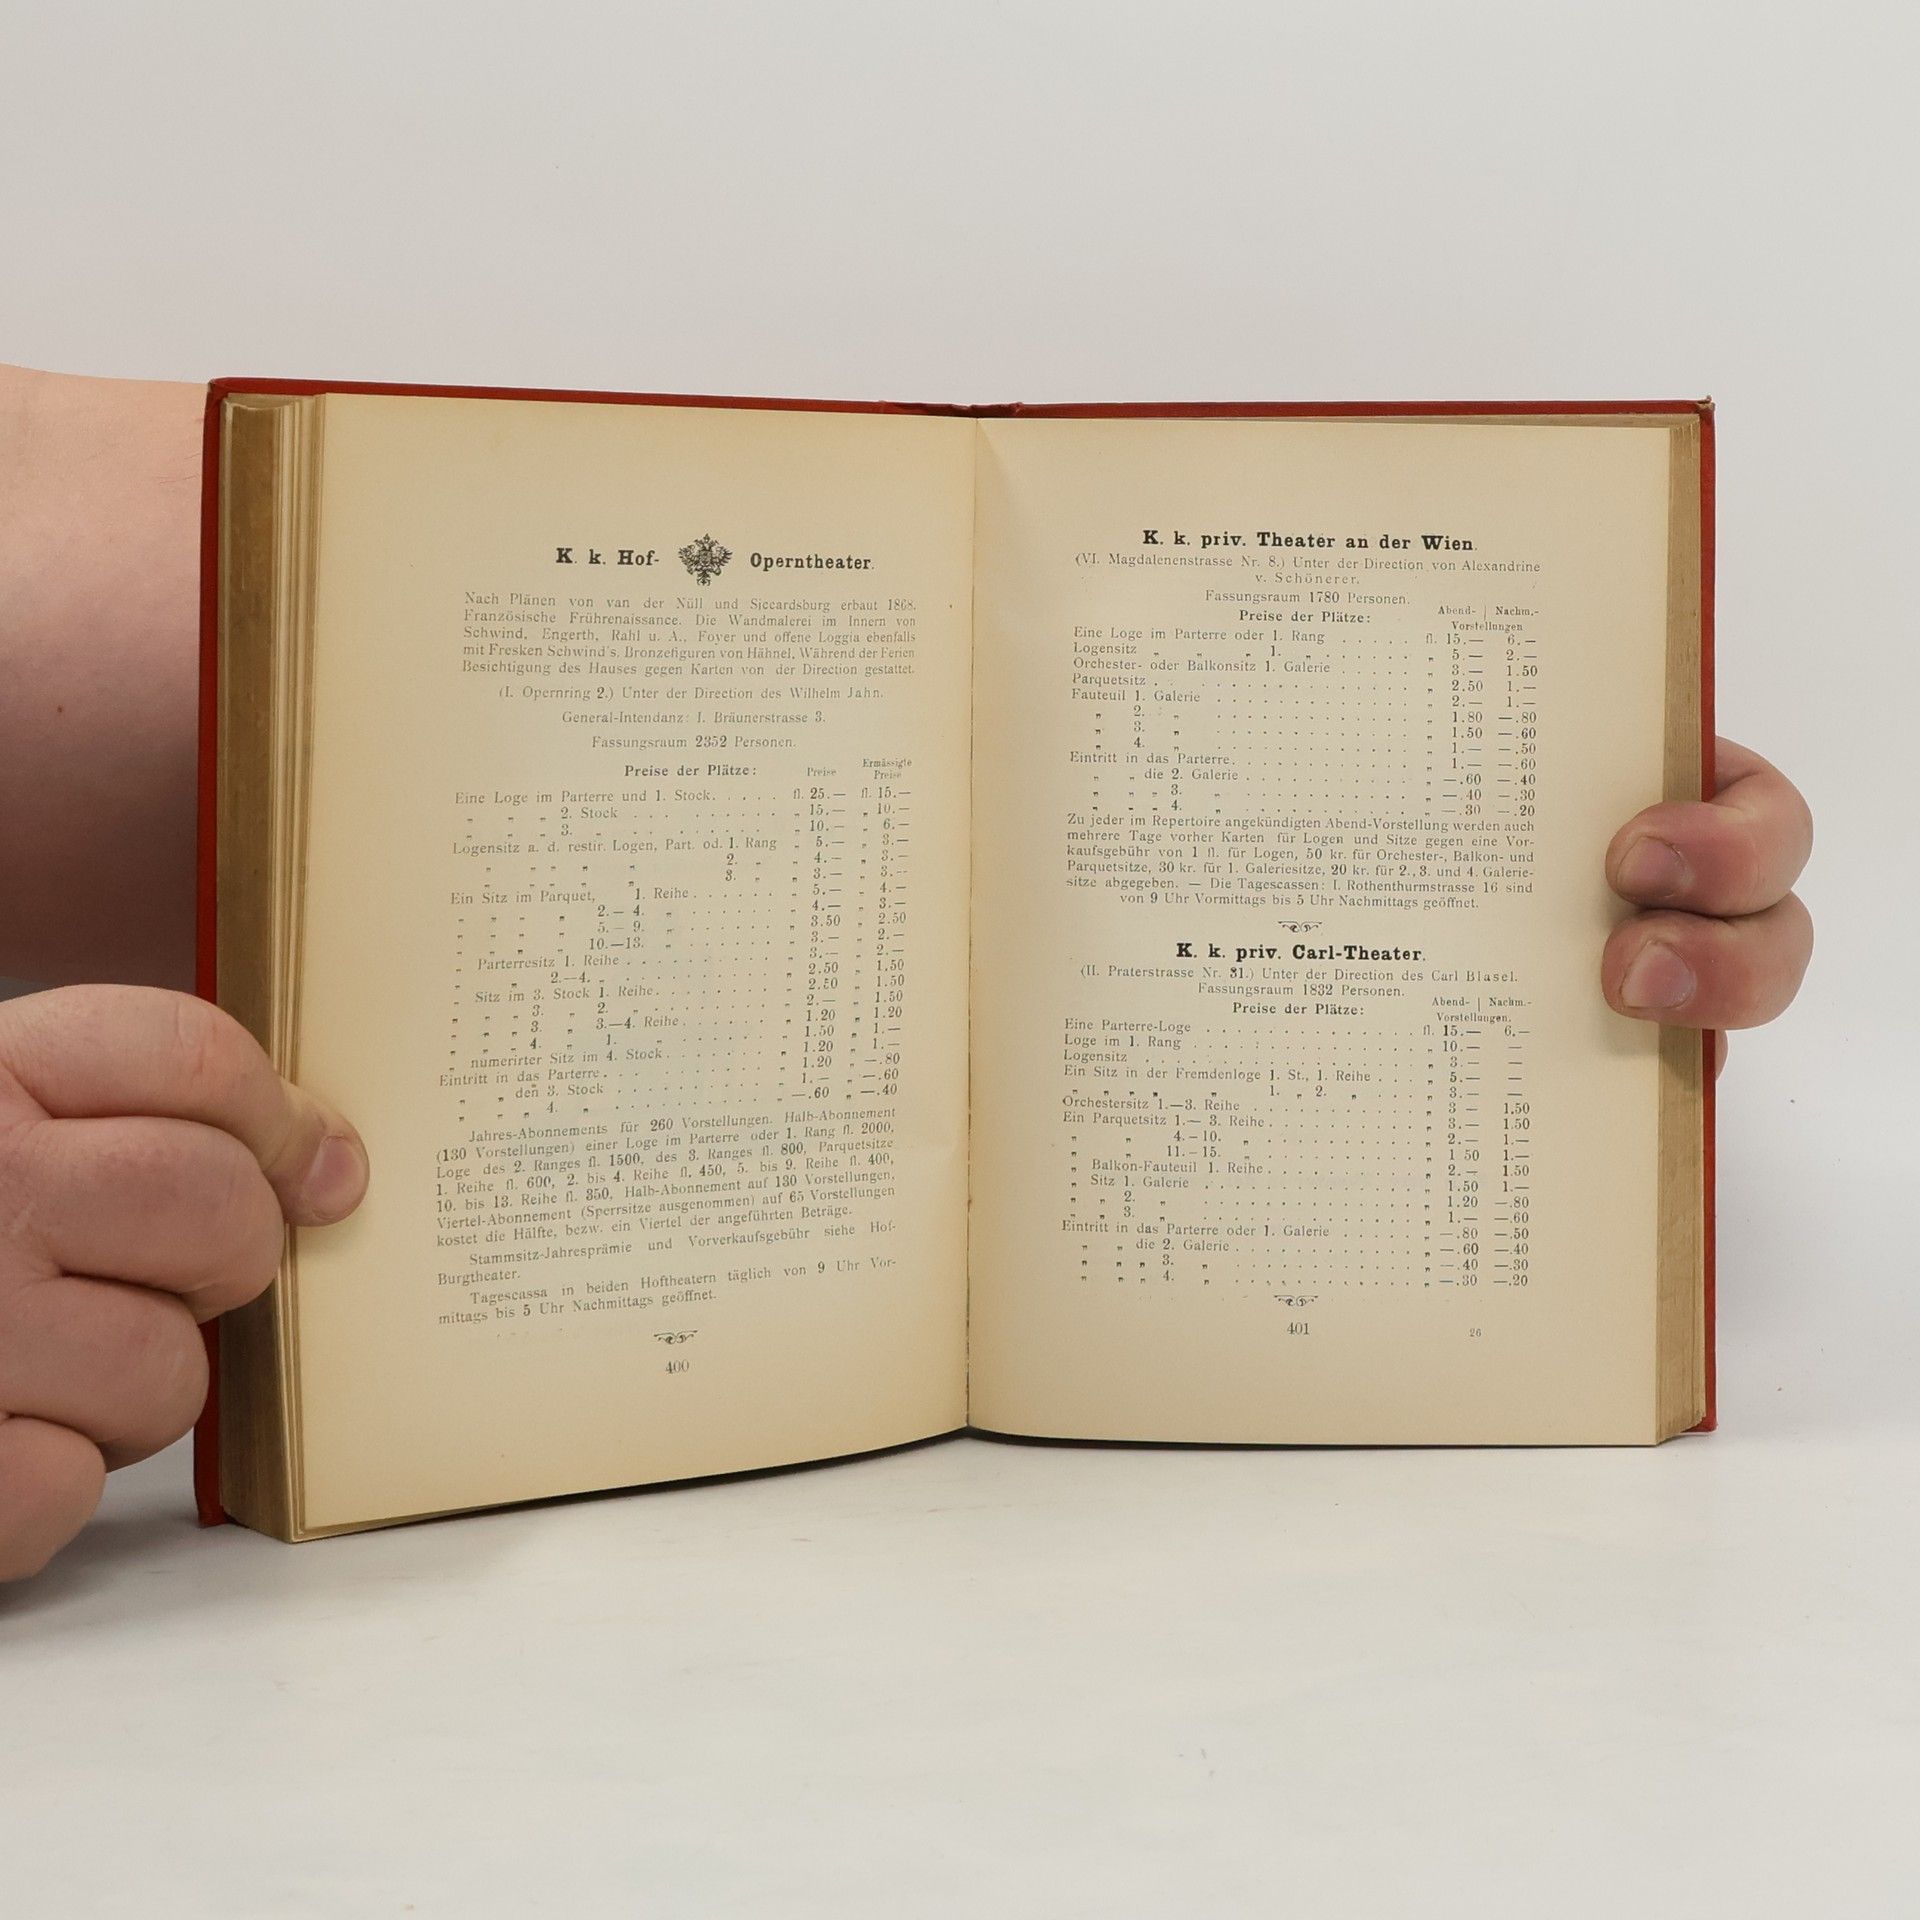 K. k. Hof- Operntheater.
Nach Plänen von van der Nüll und Siccardsburg erbaut 1868.
Französische Frührenaissance. Die Wandmalerei im Innern von
Schwind, Engerth, Rahl u. A., Foyer und offene Loggia ebenfalls
mit Fresken Schwind's. Bronzefiguren von Hähnel. Während der Ferien
Besichtigung des Hauses gegen Karten von der Direction gestattet.
(I. Opernring 2.) Unter der Direction des Wilhelm Jahn.
General-Intendanz: I. Bräunerstrasse 3.
Fassungsraum 2352 Personen.
Preise der Plätze: Preise Ermässigte Preise
Eine Loge im Parterre und 1. Stock. . . . . fl. 25.— fl. 15.—
„ „ „ 2. Stock . . . . . . . . „ 15.— „ 10.—
„ „ „ 3. „ . . . . . . . . „ 10.— „ 6.—
Logensitz a. d. restir. Logen, Part. od. 1. Rang „ 5.— „ 3.—
„ „ „ „ 2. „ „ 4.— „ 3.—
„ „ „ „ 3. „ „ 3.— „ 3.—
Ein Sitz im Parquet, 1. Reihe . . . . . . „ 5.— „ 4.—
„ „ „ „ 2.— 4. „ . . . . . . „ 4.— „ 3.—
„ „ „ „ 5.— 9. „ . . . . . . „ 3.50 „ 2.50
„ „ „ „ 10.—13. „ . . . . . . „ 3.— „ 2.—
„ Parterresitz 1. Reihe . . . . . . . . „ 3.— „ 2.—
„ „ 2.—4. „ . . . . . . . . „ 2.50 „ 1.50
„ Sitz im 3. Stock 1. Reihe. . . . . . . „ 2.50 „ 1.50
„ „ „ 3. „ 2. „ . . . . . . . „ 2.— „ 1.50
„ „ „ 3. „ 3.—4. Reihe . . . . . „ 1.20 „ 1.20
„ „ „ 4. „ 1. „ . . . . . „ 1.50 „ 1.—
„ numerirter Sitz im 4. Stock . . . . . . „ 1.20 „ 1.—
Eintritt in das Parterre . . . . . . . . . „ 1.20 „ —.80
„ „ den 3. Stock . . . . . . . . „ 1.— „ —.60
„ „ „ 4. „ . . . . . . . . „ —.60 „ —.40
Jahres-Abonnements für 260 Vorstellungen. Halb-Abonnement
(130 Vorstellungen) einer Loge im Parterre oder 1. Rang fl. 2000,
Loge des 2. Ranges fl. 1500, des 3. Ranges fl. 800, Parquetsitze
1. Reihe fl. 600, 2. bis 4. Reihe fl. 450, 5. bis 9. Reihe fl. 400,
10. bis 13. Reihe fl. 350, Halb-Abonnement auf 130 Vorstellungen,
Viertel-Abonnement (Sperrsitze ausgenommen) auf 65 Vorstellungen
kostet die Hälfte, bezw. ein Viertel der angeführten Beträge.
Stammsitz-Jahresprämie und Vorverkaufsgebühr siehe Hof-
Burgtheater.
Tagescassa in beiden Hoftheatern täglich von 9 Uhr Vor-
mittags bis 5 Uhr Nachmittags geöffnet.
400
K. k. priv. Theater an der Wien.
(VI. Magdalenenstrasse Nr. 8.) Unter der Direction von Alexandrine
v. Schönerer.
Fassungsraum 1780 Personen.
Preise der Plätze: Abend- | Nachm.-
Vorstellungen
Eine Loge im Parterre oder 1. Rang . . . . . fl. 15.— 6.—
Logensitz „ „ „ 1. „ . . . . . „ 5.— 2.—
Orchester- oder Balkonsitz 1. Galerie . . . . . „ 3.— 1.50
Parquetsitz . . . . . . . . . . . . . . „ 2.50 1.—
Fauteuil 1. Galerie . . . . . . . . . . . „ 2.— 1.—
„ 2. „ . . . . . . . . . . . „ 1.80 —.80
„ 3. „ . . . . . . . . . . . „ 1.50 —.60
„ 4. „ . . . . . . . . . . . „ 1.— —.50
Eintritt in das Parterre. . . . . . . . . . „ 1.— —.60
„ „ die 2. Galerie . . . . . . . . . „ —.60 —.40
„ „ „ 3. „ . . . . . . . . . „ —.40 —.30
„ „ „ 4. „ . . . . . . . . . „ —.30 —.20
Zu jeder im Repertoire angekündigten Abend-Vorstellung werden auch
mehrere Tage vorher Karten für Logen und Sitze gegen eine Vor-
kaufsgebühr von 1 fl. für Logen, 50 kr. für Orchester-, Balkon- und
Parquetsitze, 30 kr. für 1. Galeriesitze, 20 kr. für 2., 3. und 4. Galerie-
sitze abgegeben. — Die Tagescassen: I. Rothenthurmstrasse 16 sind
von 9 Uhr Vormittags bis 5 Uhr Nachmittags geöffnet.
K. k. priv. Carl-Theater.
(II. Praterstrasse Nr. 31.) Unter der Direction des Carl Blasel.
Fassungsraum 1832 Personen.
Preise der Plätze: Abend- | Nachm.-
Vorstellungen.
Eine Parterre-Loge . . . . . . . . . . . . fl. 15.— 6.—
Loge im 1. Rang . . . . . . . . . . . . „ 10.— —
Logensitz . . . . . . . . . . . . . . „ 3.— —
Ein Sitz in der Fremdenloge 1. St., 1. Reihe . . . „ 5.— —
„ „ „ „ „ 1. „ 2. „ . . . „ 3.— —
Orchestersitz 1.—3. Reihe . . . . . . . . . „ 3 — 1.50
Ein Parquetsitz 1.— 3. Reihe . . . . . . . . „ 3.— 1.50
„ „ 4.—10. „ . . . . . . . . „ 2.— 1.—
„ „ 11.—15. „ . . . . . . . . „ 1 50 1.—
„ Balkon-Fauteuil 1. Reihe . . . . . . . . „ 2.— 1.50
„ Sitz 1. Galerie . . . . . . . . . . . „ 1.50 1.—
„ „ 2. „ . . . . . . . . . . . „ 1.20 —.80
„ „ 3. „ . . . . . . . . . . . „ 1.— —.60
Eintritt in das Parterre oder 1. Galerie . . . . . „ —.80 —.50
„ „ die 2. Galerie . . . . . . . . . . „ —.60 —.40
„ „ „ 3. „ . . . . . . . . . . „ —.40 —.30
„ „ „ 4. „ . . . . . . . . . . „ —.30 —.20
401
26